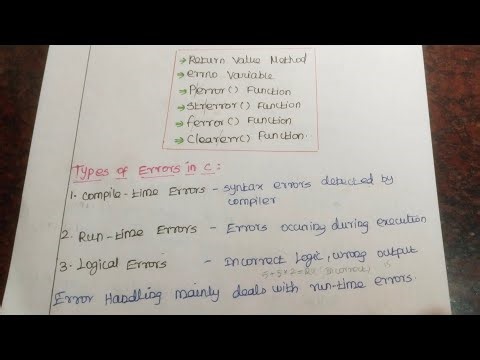 → Return Value Method
→ errno Variable
→ Perror() Function
→ Strerror() Function
→ ferror() Function
→ Clearerr() Function.
Types of Errors in C :
1. Compile-time Errors - syntax errors detected by
compiler
2. Run-time Errors - Errors occuring during execution
3. Logical Errors - Incorrect Logic, wrong output
Error Handling mainly deals with run-time errors.